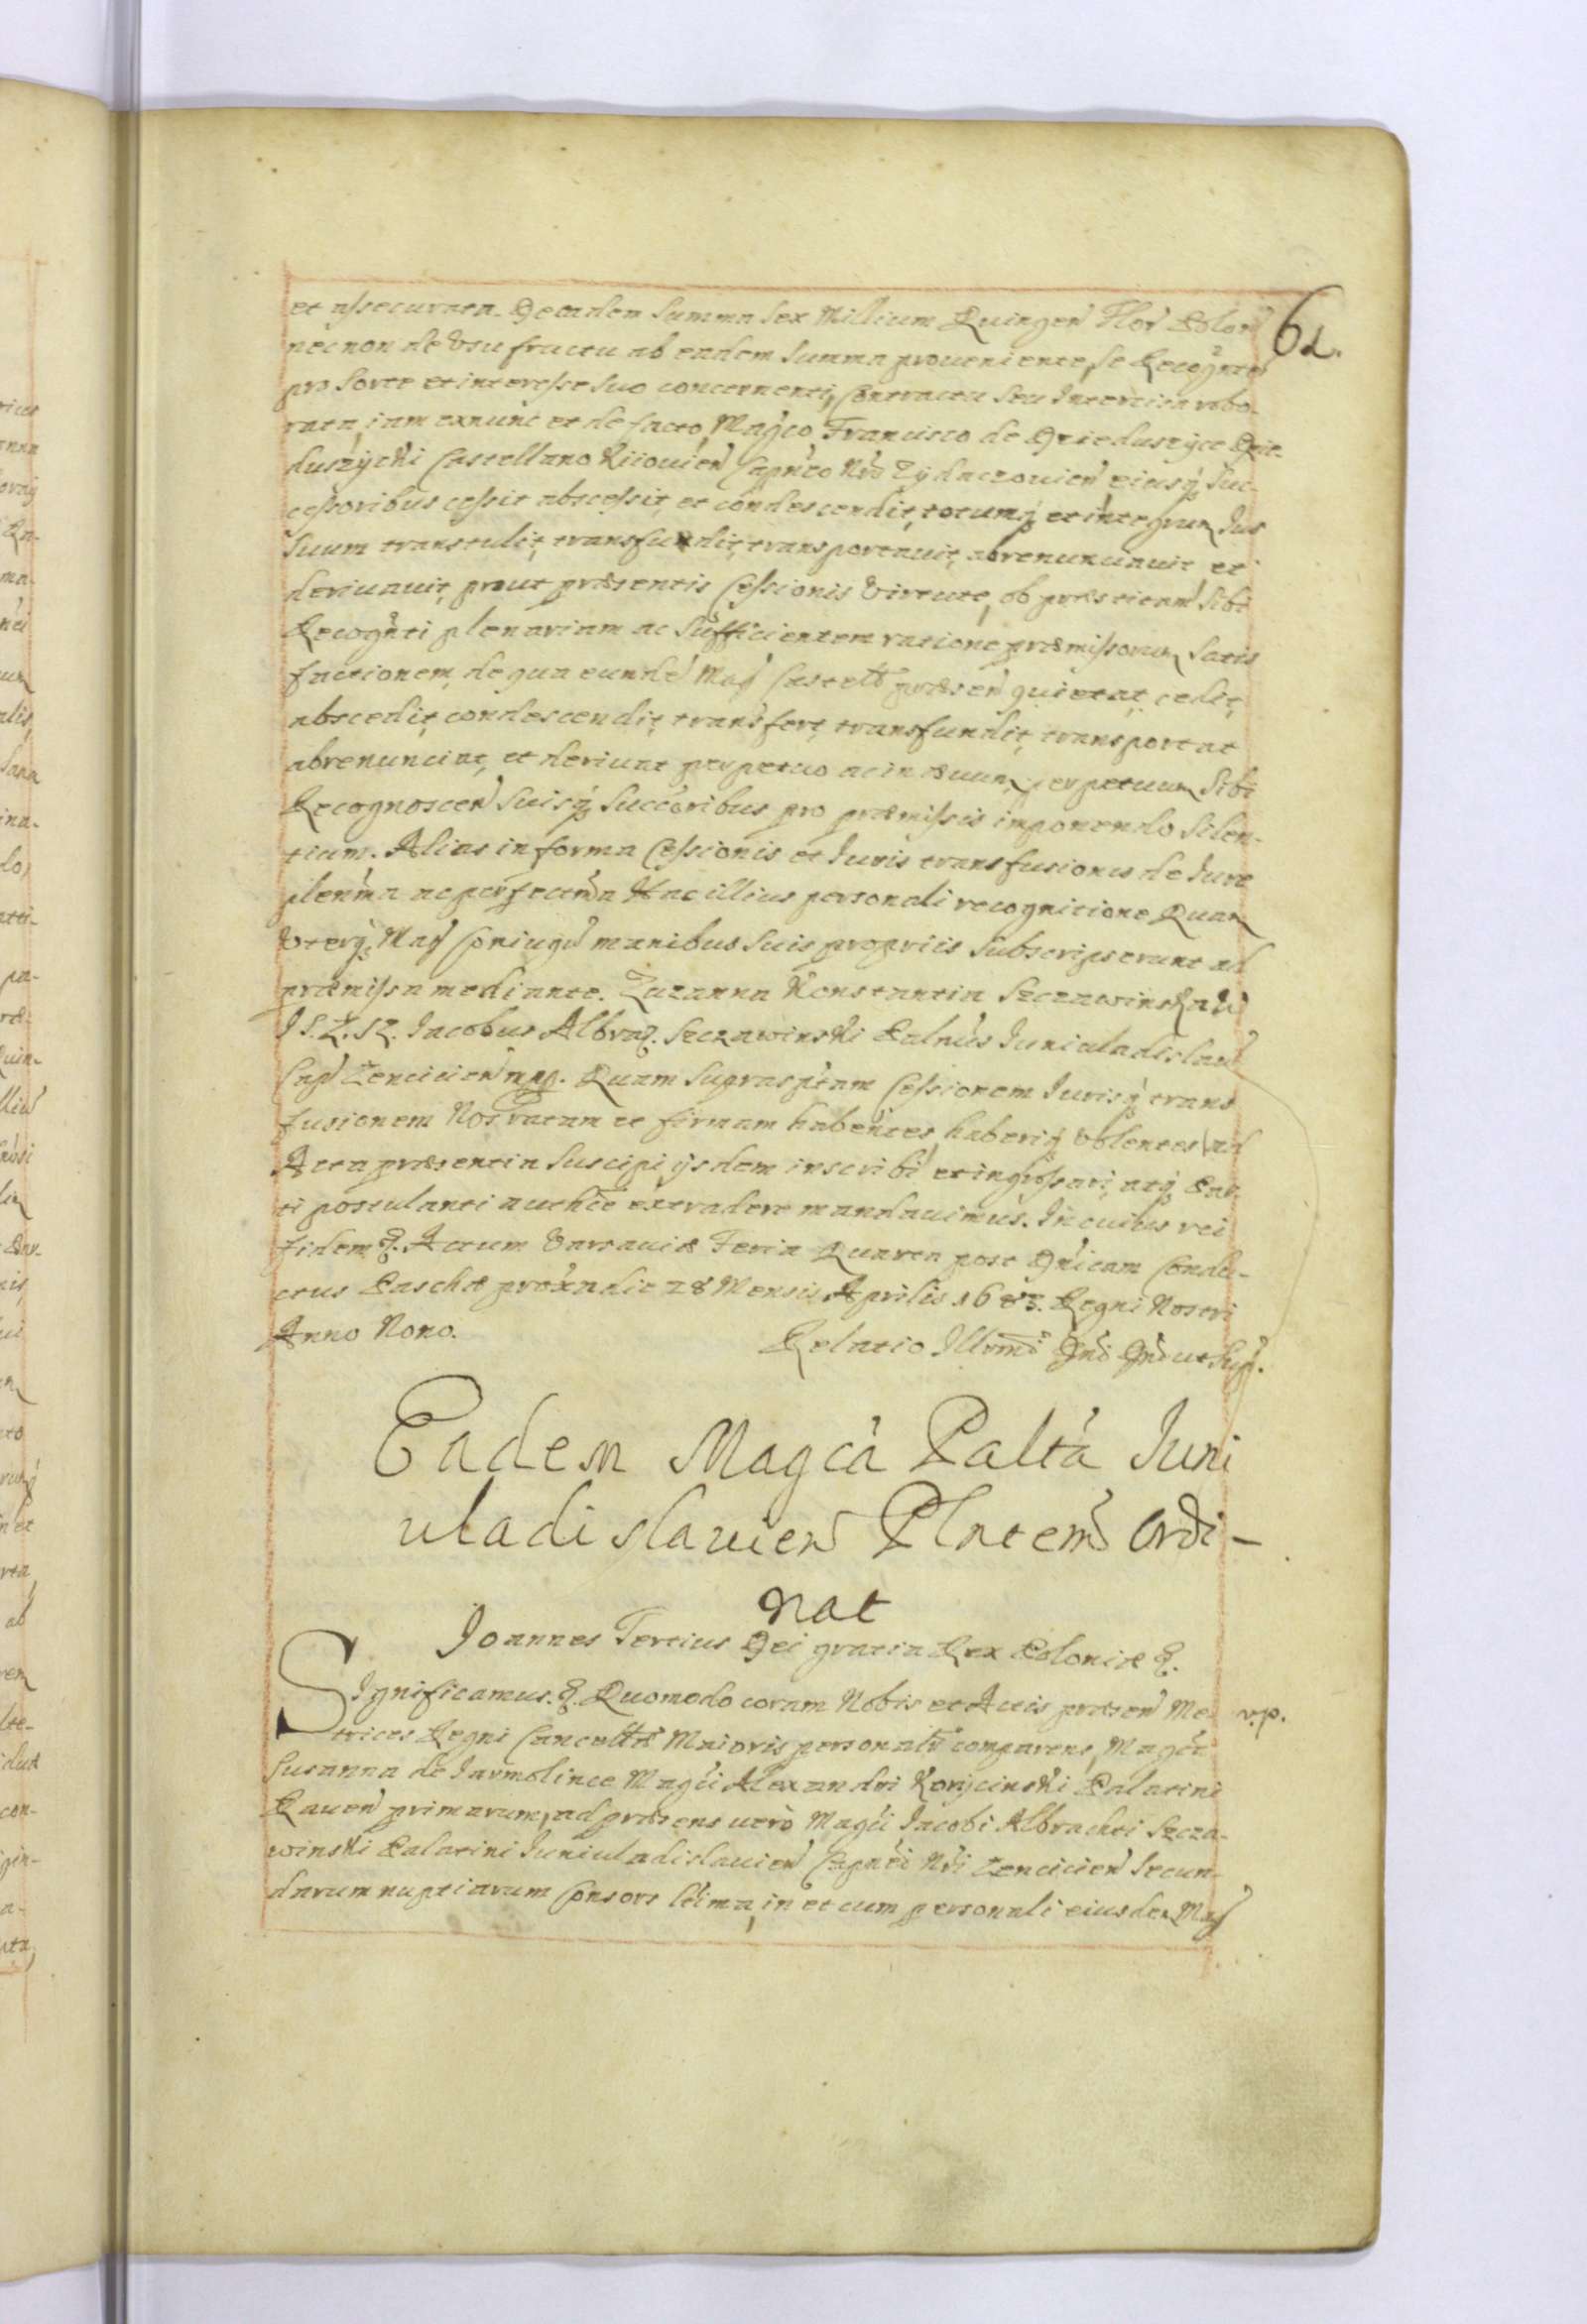 61.
et assecurata. De eadem Summa Sex Millium Quingen Flor Polon
necnon de Usufructu ab eadem Summa proueniente, se Recognten
pro Sorte et interesse suo concernenti, Contractu seu Intercisa robo-
rata, iam exnunc et de facto, Magco Francisco de Dzieduszyce Dzie-
duszycki Castellano Kiiouien Capneo Nro Zydaczouien eiusq Suc-
cessoribus cessit abscessit, et condescendit, totumq et integrum Jus
Suum transtulit, transfundit, transportauit, abrenunciauit et
deriuauit, prout præsentis Cessionis Virtute, ob præstitam Sibi
Recognti plenariam ac Sufficientem ratione præmissorum Satis
factionem, de qua eunde Mag Castell præsen quietat, cedit,
abscedit, condescendit, transfert, transfundit, transportat
abrenunciat, et deriuat perpetuo ac in æuum, perpetuum Sibi
Recognoscen Suisq Succoribus pro præmissis imponendo Silen-
tium. Alias in forma Cessionis et Juris transfusionis de Jure
plenma ac perfectma Hac illius personali recognitione Quam
Uterq Mag Coniugu manibus suis propriis Subscripserunt ad
præmissa mediante. Zuzanna Konstantia Szczawinska W
J S. Z. S Z. Jacobus Albra. Szczawinski Palnus Juniuladislau
Cap Lencicien mpp. Quam Suprasptam Cessionem Jurisq trans
fusionem Nos ratam et firmam habentes, haberiq Volentes, ad
Acta præsentia Suscipi, ysdem inscribi et ingrossari, atq Par-
ti postulanti authce extradere mandauimus. In cuius rei
fidem &. Actum Varsauiæ Feria Quarta post Dnicam Condu-
ctus Paschæ proxa die 28 Mensis Aprilis 1683. Regni Nostri
Anno Nono.
Relatio Illrmi Dni Dni ut sup.
Eadem Magca Palta Juni
uladislauien Plntem Ordi-
nat
Joannes Tertius Dei gratia Rex Poloniæ &.
Significamus. &. Quomodo coram Nobis et Actis præsen Me- v.p.
trices Regni Cancellæ Maioris personalr comparens, Magca
Susanna de Jarmolince Magci Alexandri Korycinski Palatini
Rauen primarum, ad præsens uero Magci Jacobi Albrachti Szcza-
winski Palatini Juniuladislauien Capnei Nri Lencicien Secun-
darum nuptiarum Consors Ltima, in et cum personali eiusdem Mag